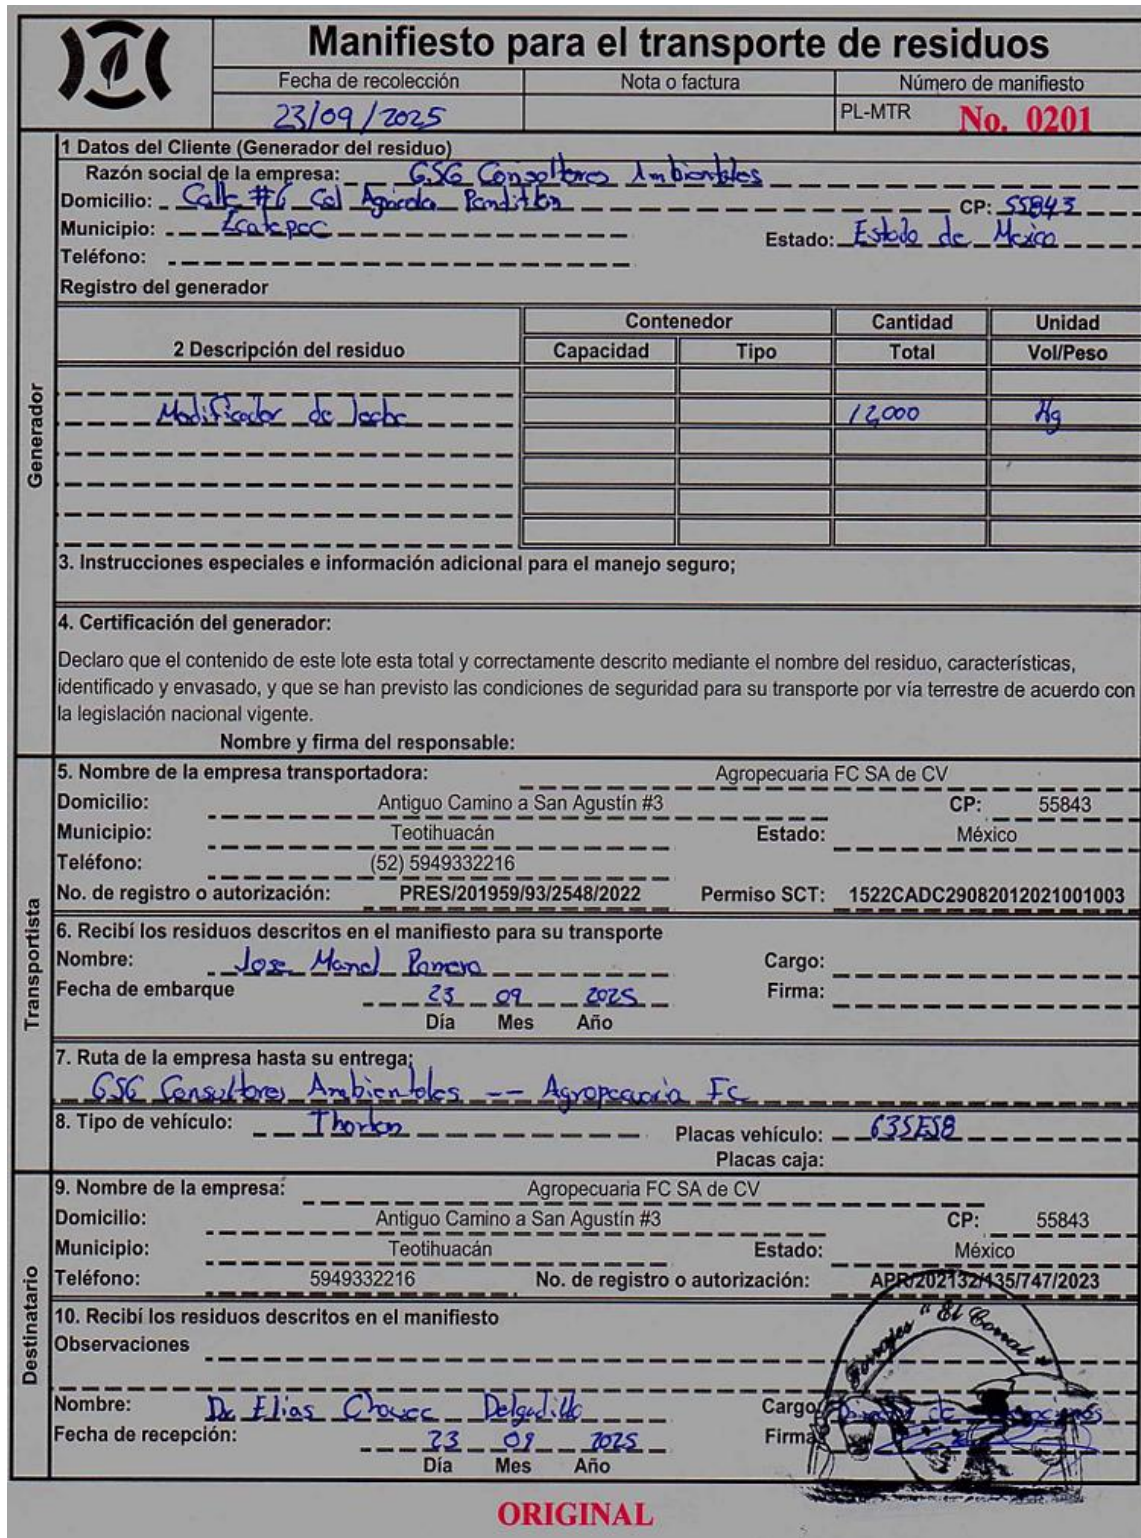 Manifiesto para el transporte de residuos
Fecha de recolección Nota o factura Número de manifiesto
23/09/2025 PL-MTR No. 0201
1 Datos del Cliente (Generador del residuo)
Razón social de la empresa: GSG Consultores Ambientales
Domicilio: Calle #6 Col Agricola Pantitlan CP: 55843
Municipio: Ecatepec Estado: Estado de Mexico
Teléfono:
Registro del generador
Contenedor Cantidad Unidad
2 Descripción del residuo Capacidad Tipo Total Vol/Peso
Modificador de leche 12,000 Kg
Generador
3. Instrucciones especiales e información adicional para el manejo seguro;
4. Certificación del generador:
Declaro que el contenido de este lote esta total y correctamente descrito mediante el nombre del residuo, características,
identificado y envasado, y que se han previsto las condiciones de seguridad para su transporte por vía terrestre de acuerdo con
la legislación nacional vigente.
Nombre y firma del responsable:
5. Nombre de la empresa transportadora: Agropecuaria FC SA de CV
Domicilio: Antiguo Camino a San Agustín #3 CP: 55843
Municipio: Teotihuacán Estado: México
Teléfono: (52) 5949332216
No. de registro o autorización: PRES/201959/93/2548/2022 Permiso SCT: 1522CADC29082012021001003
Transportista
6. Recibí los residuos descritos en el manifiesto para su transporte
Nombre: Jose Manel Cargo:
Fecha de embarque 23 09 2025 Firma:
Día Mes Año
7. Ruta de la empresa hasta su entrega;
GSG Consultores Ambientales -- Agropecuaria Fc
8. Tipo de vehículo: Thorton Placas vehículo: 635ES8
Placas caja:
9. Nombre de la empresa: Agropecuaria FC SA de CV
Domicilio: Antiguo Camino a San Agustín #3 CP: 55843
Municipio: Teotihuacán Estado: México
Teléfono: 5949332216 No. de registro o autorización: APR/202132/135/747/2023
Destinatario
10. Recibí los residuos descritos en el manifiesto
Observaciones
Forrajes "El Corral"
Nombre: Dr Elias Delgadillo Cargo: de
Fecha de recepción: 23 09 2025 Firma:
Día Mes Año
ORIGINAL